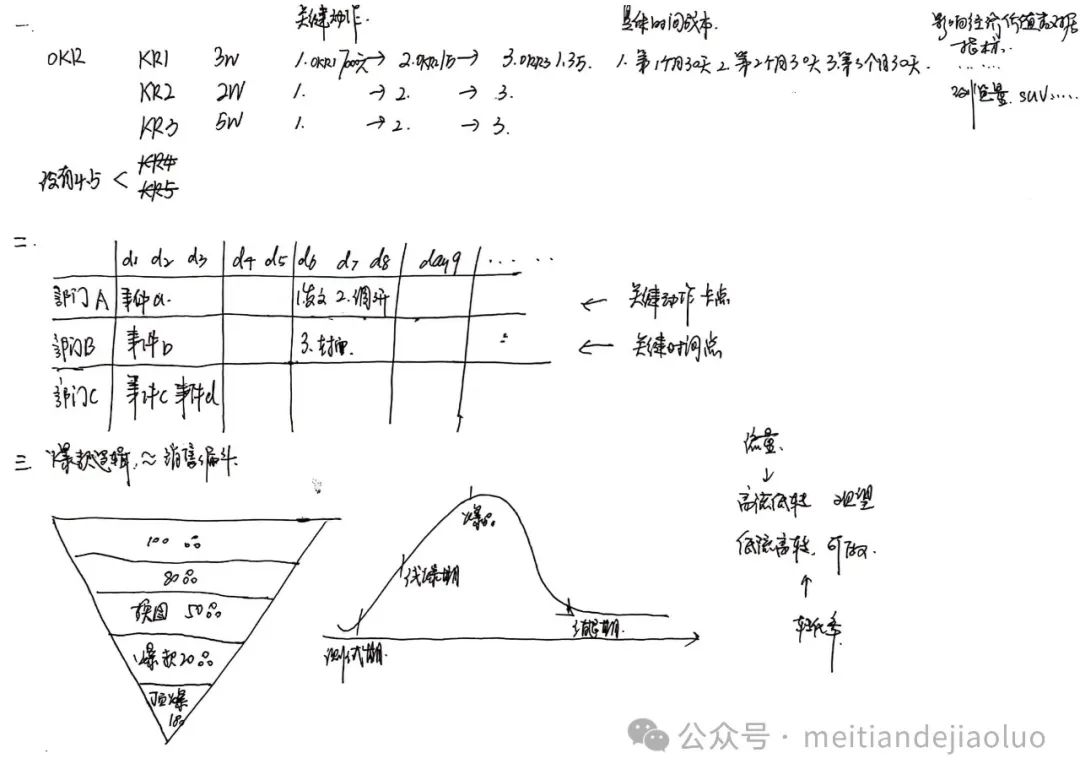 一. 关键动作. 具体时间成本. 影响经济价值数据指标.
OKR KR1 3W 1.OKR1 700元 → 2.OKR2 1万 → 3.OKR3 1.3万. 1.第1个月30天 2.第2个月30天 3.第3个月30天. ……
KR2 2W 1. → 2. → 3. 浏览量. SUV.….
KR3 5W 1. → 2. → 3.
没有4.5 < KR4
KR5
二.
d1 d2 d3 d4 d5 d6 d7 d8 day9 … …
部门A 事件a. 1.发文 2.调研 ← 关键动作 卡点
部门B 事件b 3. ← 关键时间点
部门C 事件c 事件d
三 爆款逻辑,≈销售漏斗.
100品
80品
换图 50品
爆款20品
顶爆
测试期.
代爆期
爆品
流量.
↓
高流低转 观望
低流高转. 可做.
↑
转化率
公众号 · meitiandejiaoluo